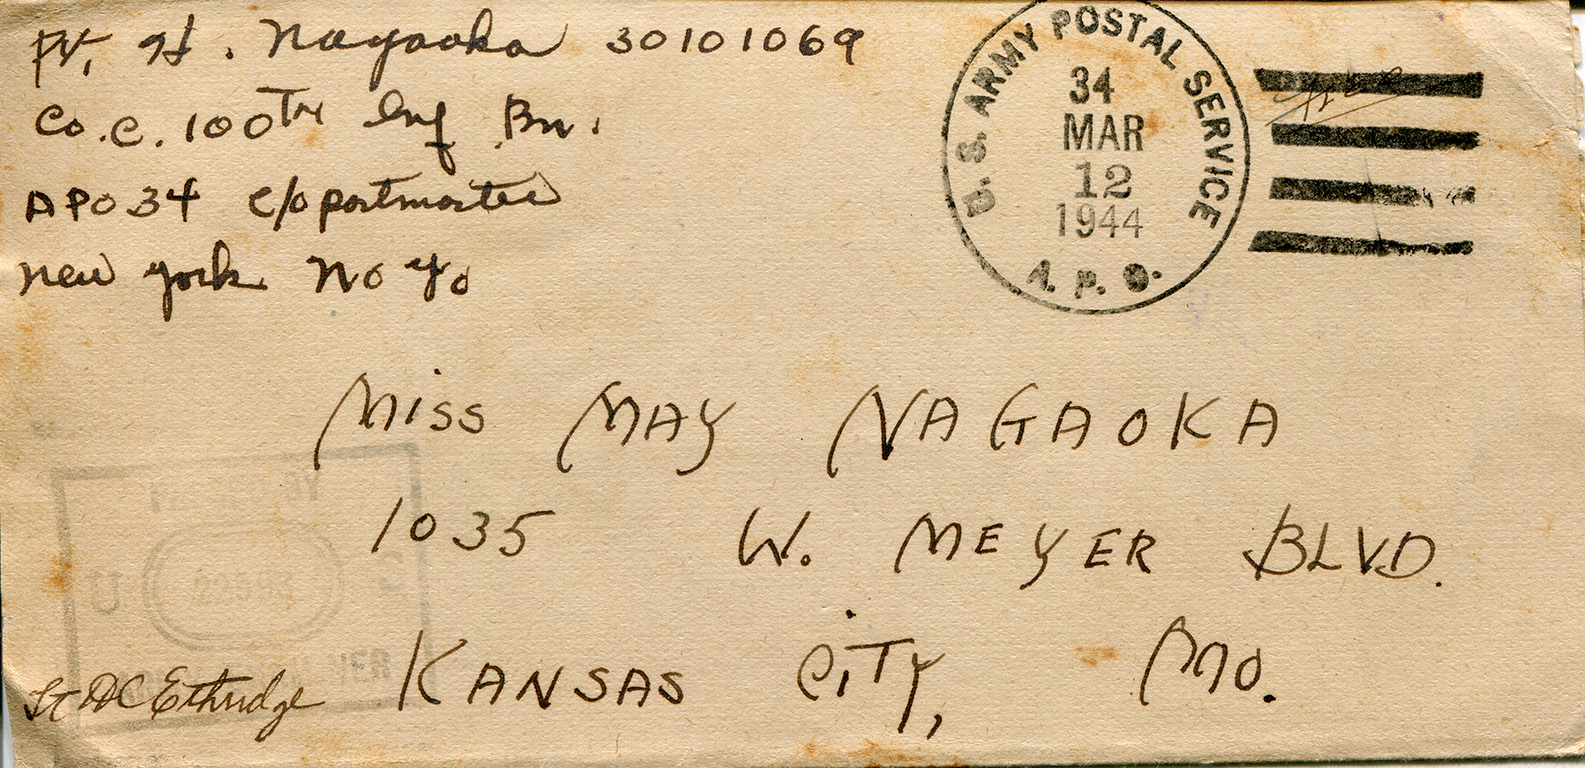 Pvt. H. Nagaoka 30101069
Co. C. 100TH Inf Bn.
APO 34 c/o postmaster
New York No Yo
U.S. ARMY POSTAL SERVICE
34
MAR
12
1944
A. P. O.
Miss MAY NAGAOKA
1035 W. MEYER BLVD.
KANSAS CiTY, MO.
BY
U.
Lt DC Ethridge